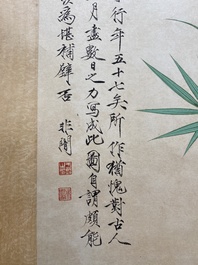 行年五十七矣所作猶愧對古人
月盡數日之力寫成此圖自謂頗能
為堪補壁否
非闇